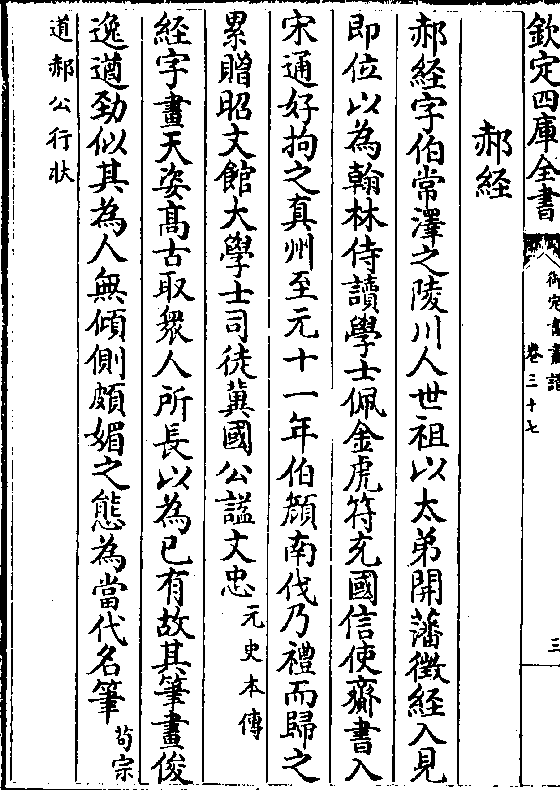 欽定四庫全書
御定書畫譜
卷三十七
三
郝經
郝經字伯常澤之陵川人世祖以太弟開藩徵經入見
即位以為翰林侍讀學士佩金虎符充國信使齎書入
宋通好拘之真州至元十一年伯顔南伐乃禮而歸之
累贈昭文館大學士司徒冀國公謚文忠元史本傳
経字畫天姿髙古取衆人所長以為已有故其筆畫俊
逸遒勁似其為人無傾側頗媚之態為當代名筆茍宗
道郝公行狀